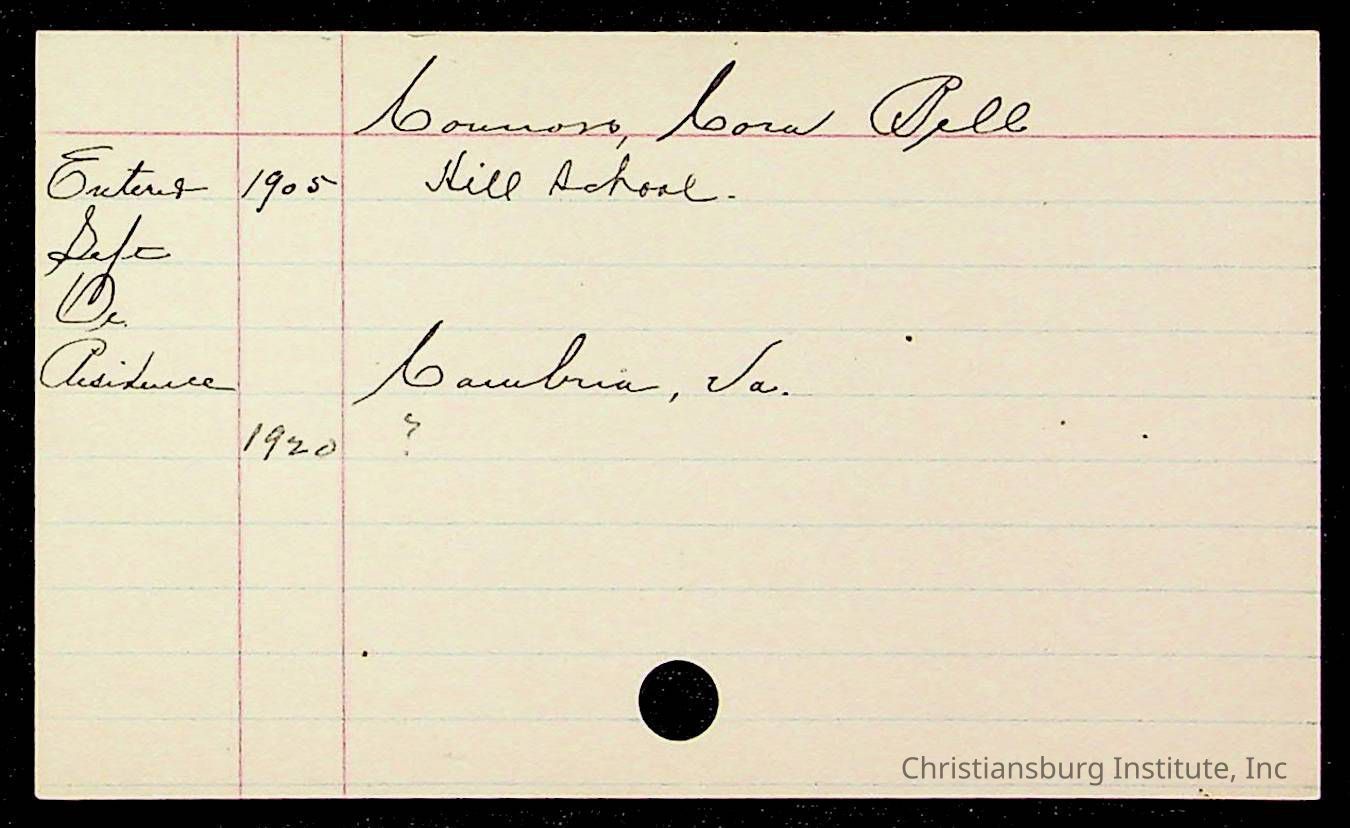 Connors, Cora Bell
Entered 1905 Hill School.
Left
Oc.
Residence Cambria, Va.
1920 ?
Christiansburg Institute, Inc